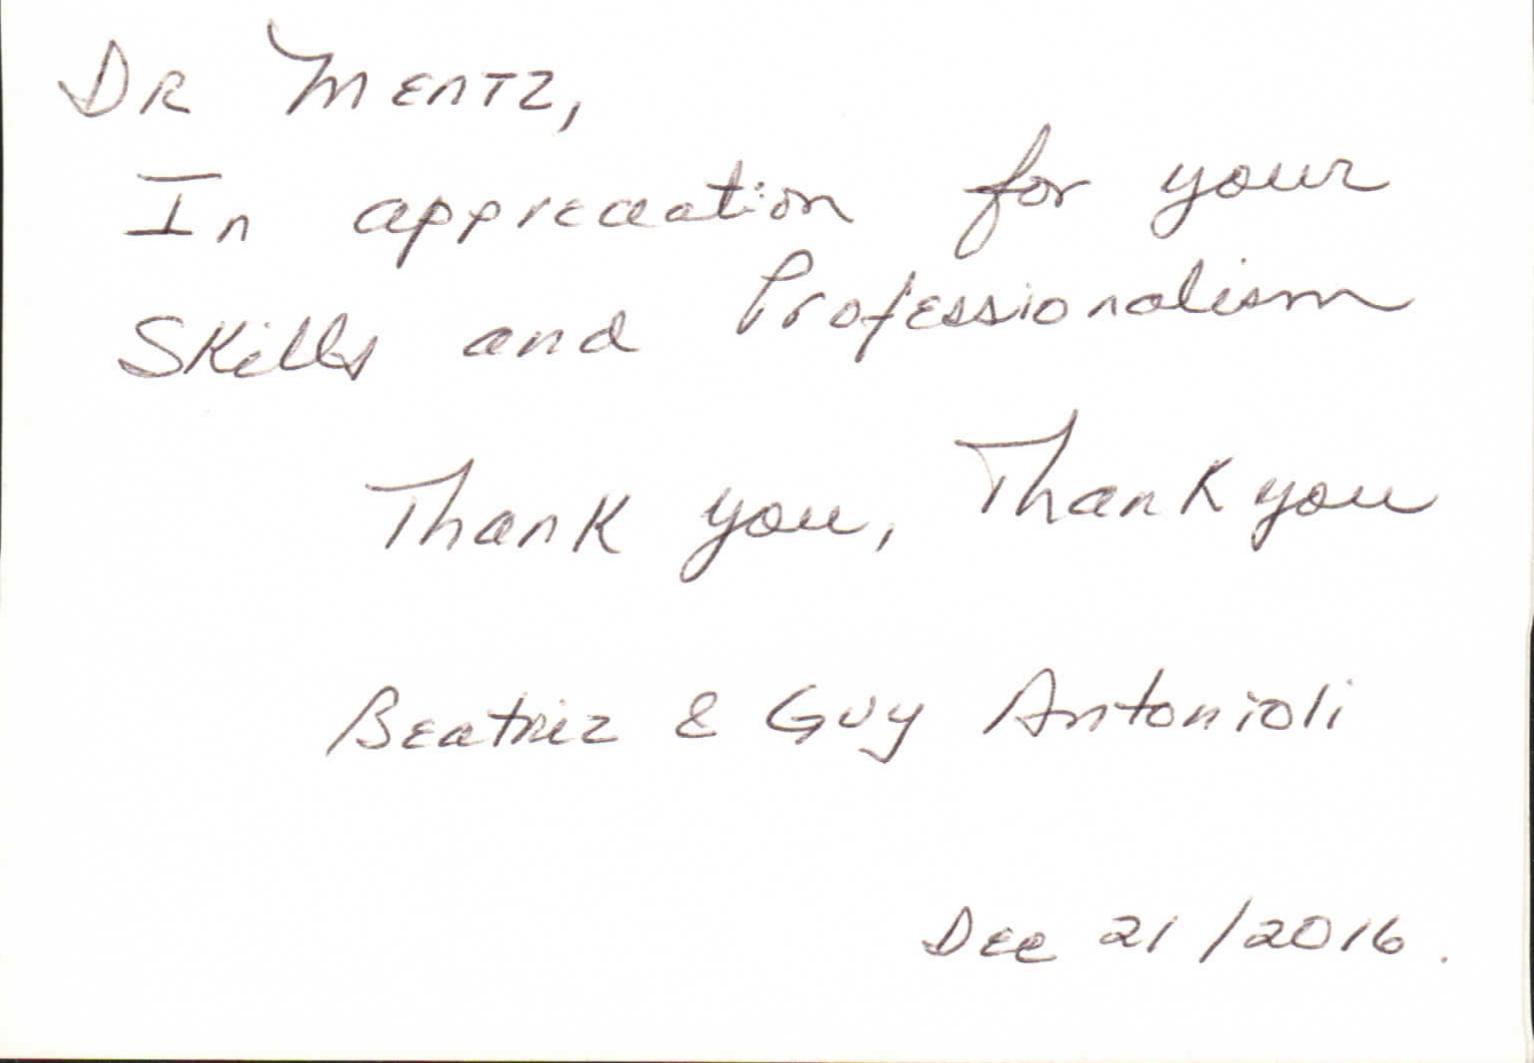 Dr Mentz,
In appreciation for your
Skills and Professionalism
Thank you, Thank you
Beatriz & Guy Antonioli
Dec 21/2016.